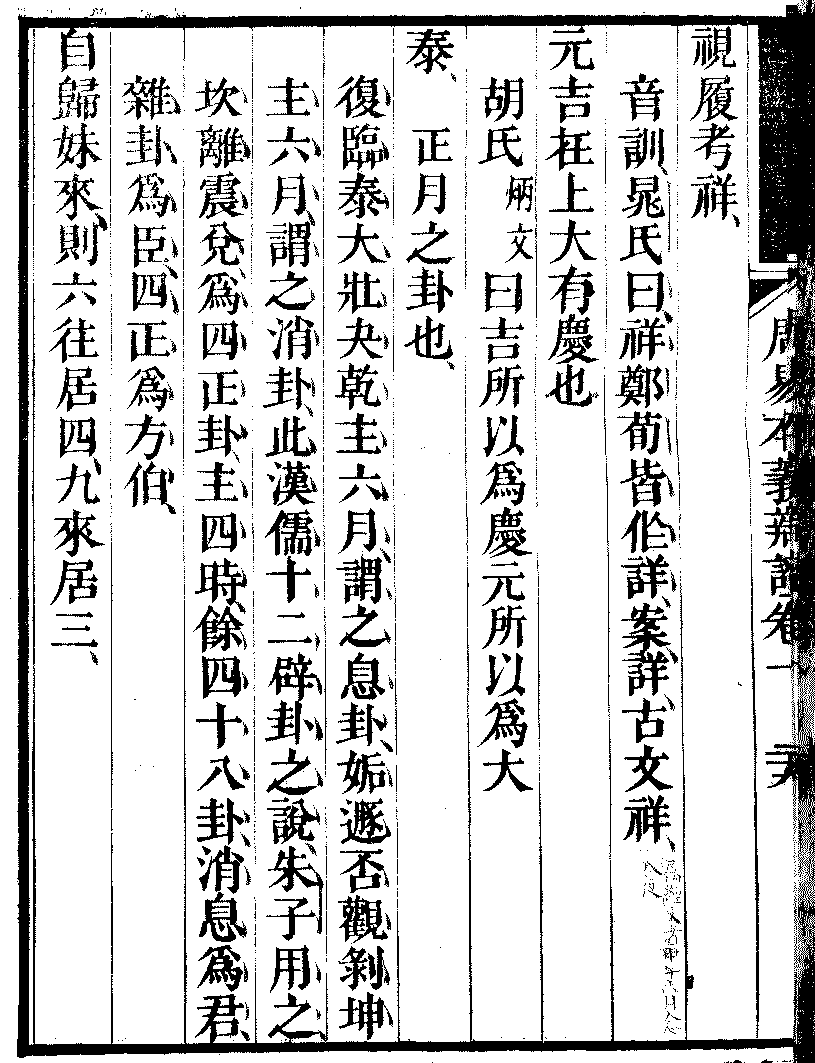 周易本義辨證卷一
視履考祥、
音訓、晁氏曰、祥鄭荀皆作詳、案、詳、古文祥、
元吉在上大有慶也
胡氏炳文曰吉所以爲慶元所以爲大
泰、正月之卦也、
復臨泰大壯夬乾主六月、謂之息卦、姤遯否觀剝坤
主六月、謂之消卦、此漢儒十二辟卦之說、朱子用之
坎離震兌爲四正卦、主四時、餘四十八卦、消息爲君、
雜卦爲臣、四正爲方伯、
自歸妹來、則六往居四、九來居三、